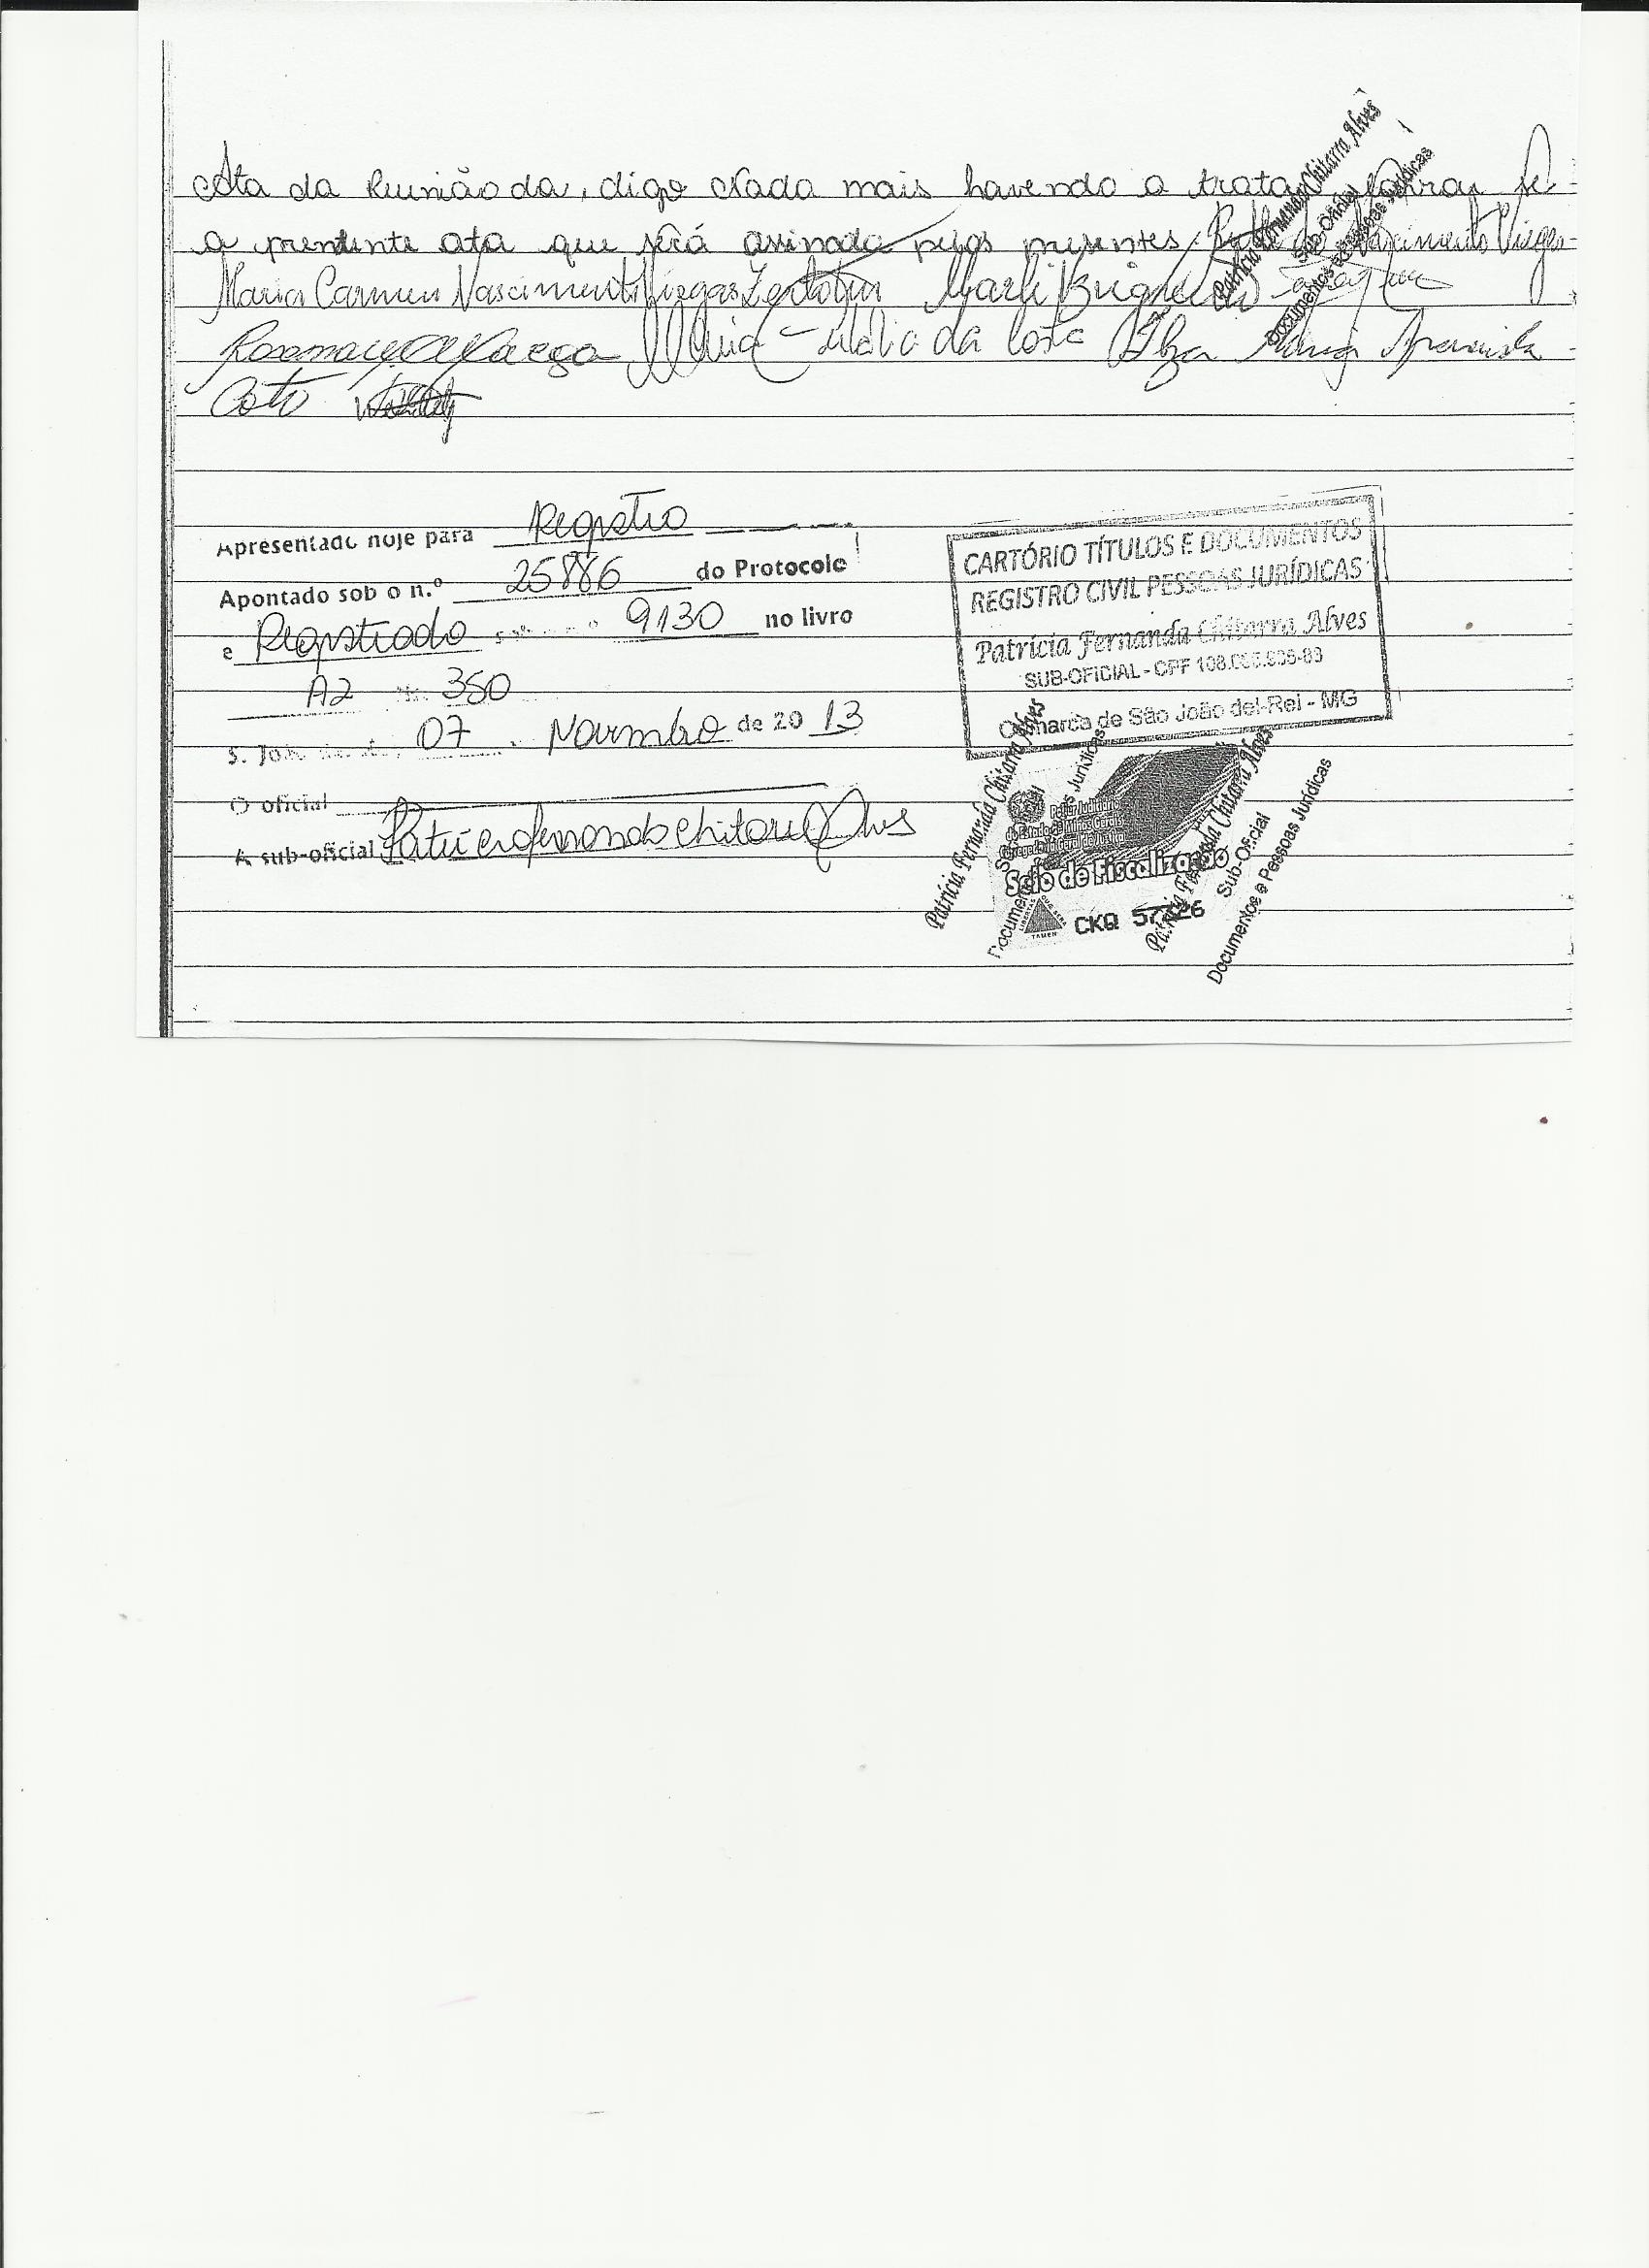 Ata da Reunião da, digo Nada mais havendo a tratar lavrou se
a presente ata que será assinada pelos presentes. Nascimento Viegas
Maria Carmen Nascimento Viegas
da Costa Ilza Maria Aparecida
Apresentado hoje para Registro
Apontado sob o n.º 25886 do Protocolo
e Registrado sob o nº 9130 no livro
A2 350
S. João 07 Novembro de 2013
O oficial
A sub-oficial Patricia Fernanda Chitarra Alves
CARTÓRIO TÍTULOS E DOCUMENTOS
REGISTRO CIVIL PESSOAS JURÍDICAS
Patrícia Fernanda Chitarra Alves
SUB-OFICIAL - CPF
Comarca de São João del-Rei - MG
Poder Judiciário
do Estado de Minas Gerais
Corregedoria Geral de Justiça
Selo de Fiscalização
CKQ
Patrícia Fernanda Chitarra Alves
Sub-Oficial
Documentos e Pessoas Jurídicas
Patrícia Fernanda Chitarra Alves
Sub-Oficial
Documentos e Pessoas Jurídicas
Patrícia Fernanda Chitarra Alves
Sub-Oficial
Documentos e Pessoas Jurídicas